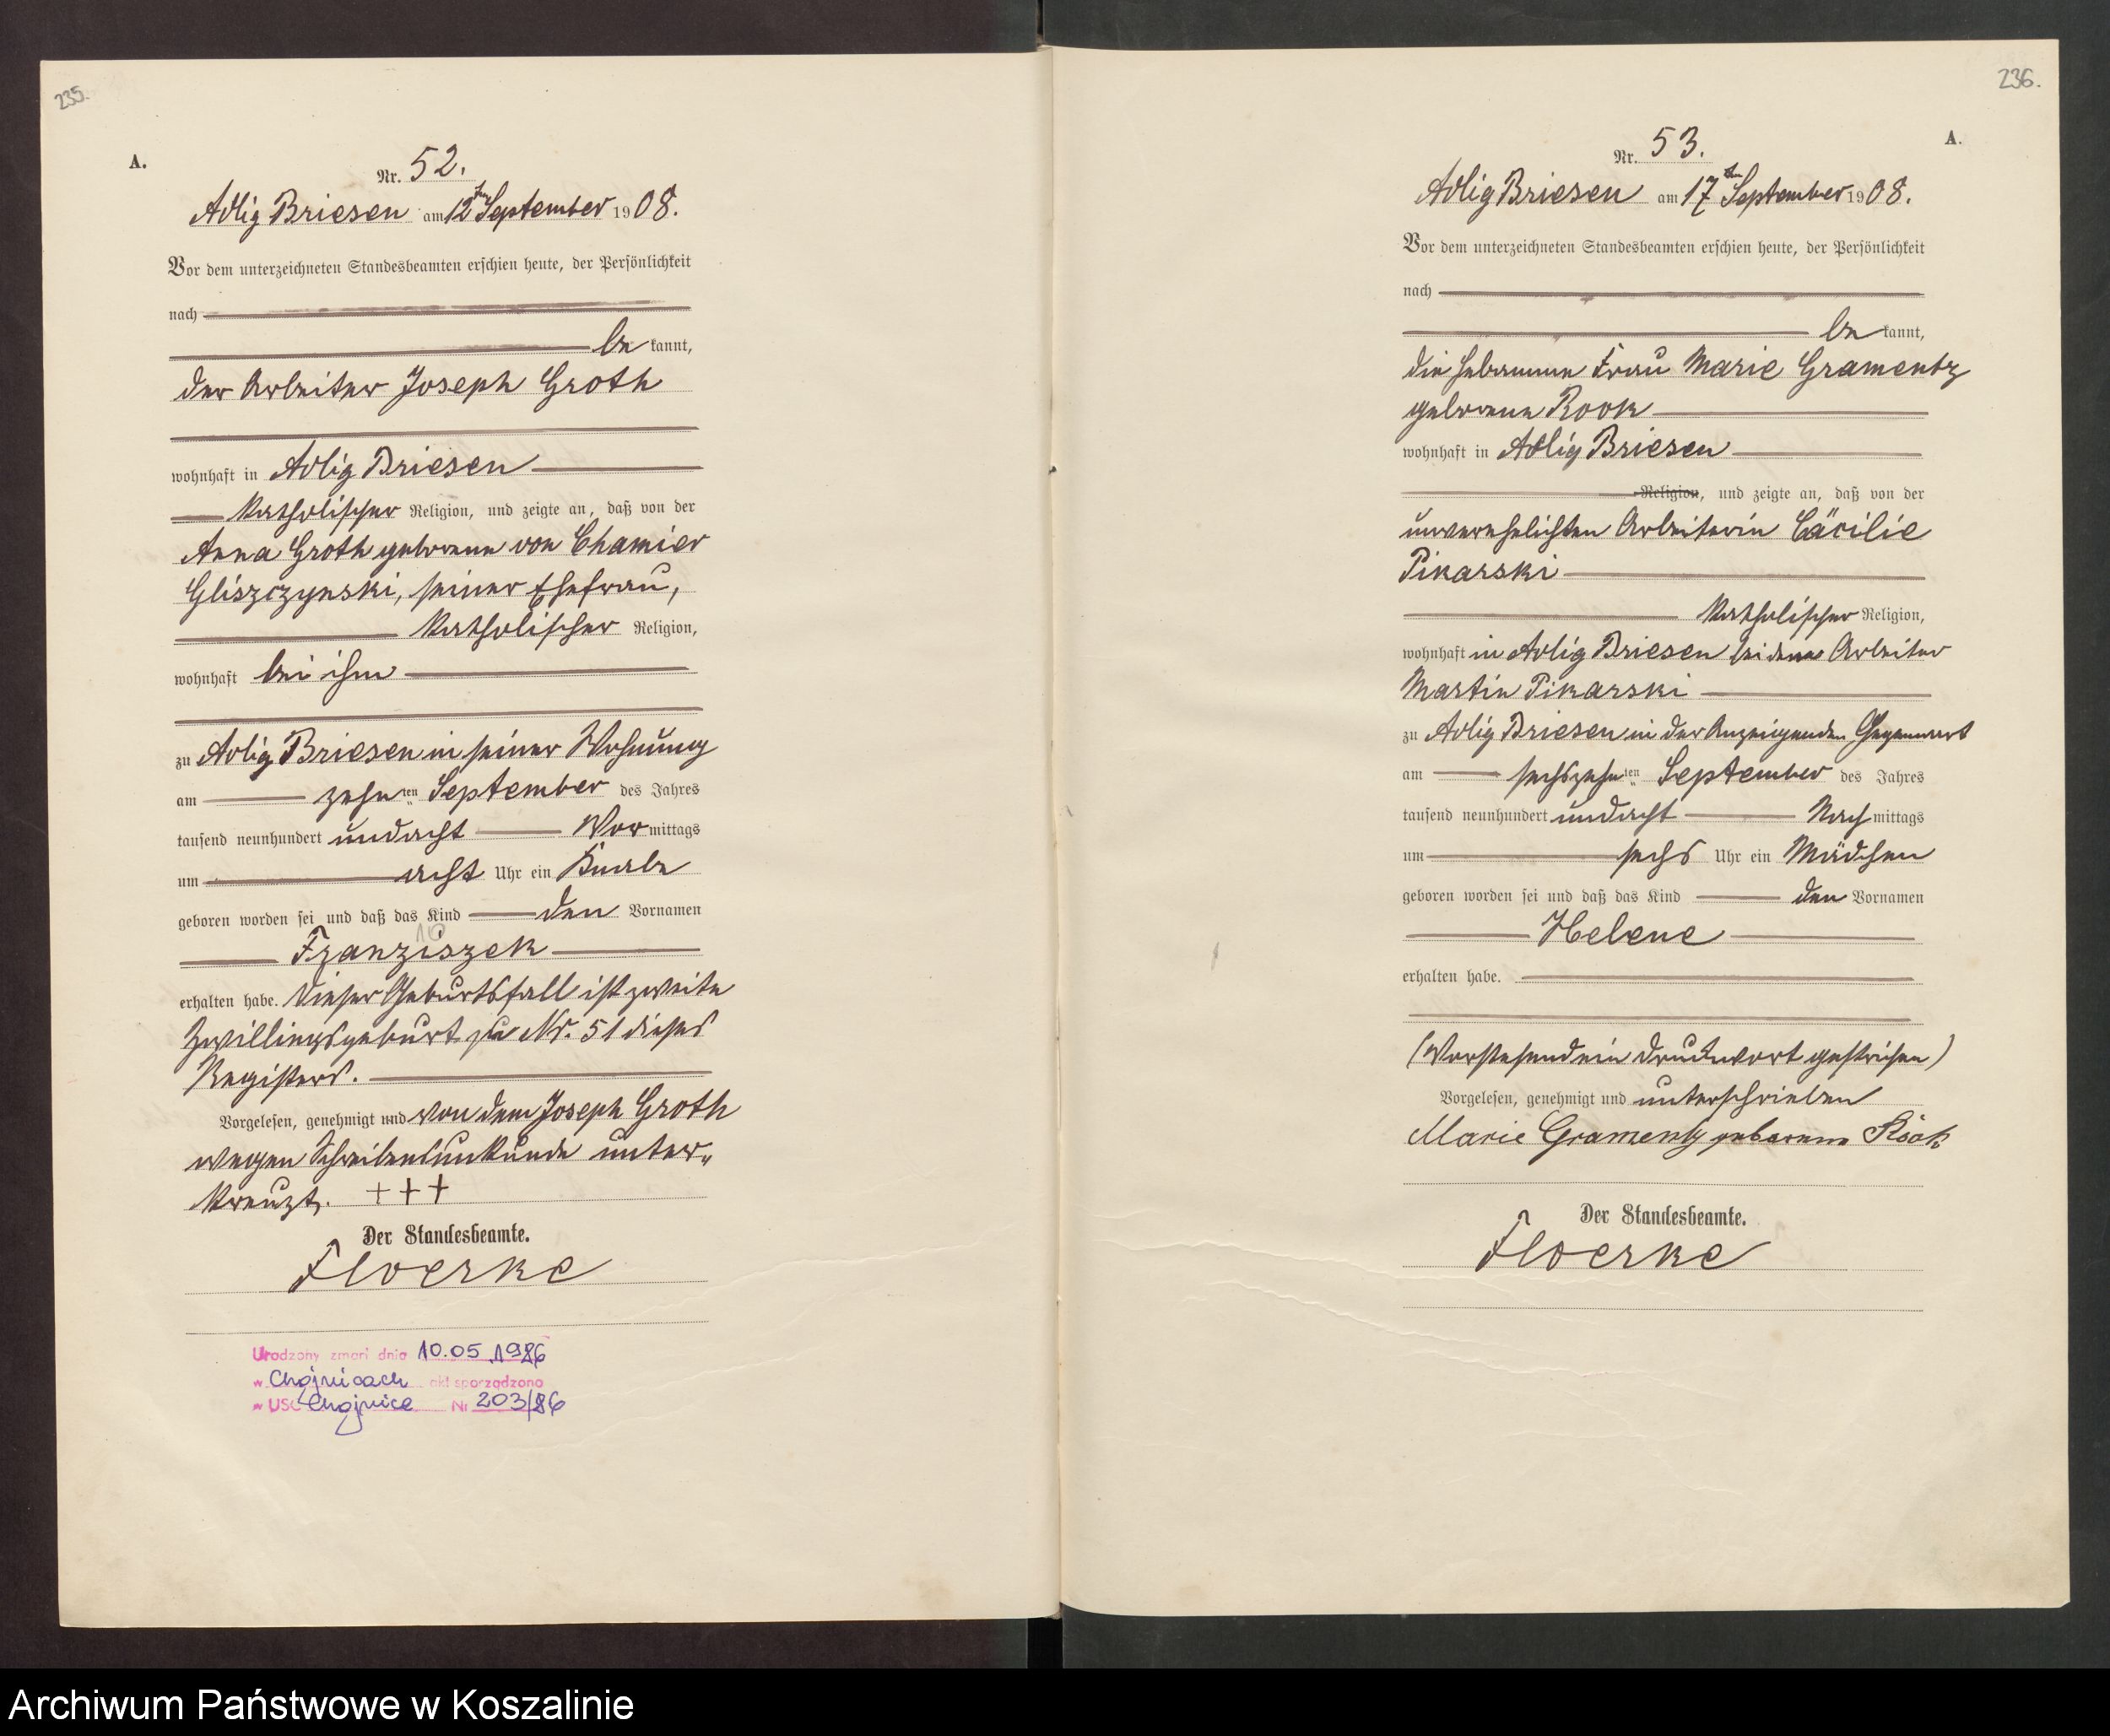 235.
A.
Nr. 52.
Adlig Briesen am 12ten September 1908.
Vor dem unterzeichneten Standesbeamten erschien heute, der Persönlichkeit
nach
be kannt,
der Arbeiter Joseph Groth
wohnhaft in Adlig Briesen
katholischer Religion, und zeigte an, daß von der
Anna Groth geborene von Chamier
Gliszczynski, seiner Ehefrau,
katholischer Religion,
wohnhaft bei ihm
zu Adlig Briesen in seiner Wohnung
am zehnten September des Jahres
tausend neunhundert undacht Vormittags
um acht Uhr ein Knabe
geboren worden sei und daß das Kind den Vornamen
Franziszek
erhalten habe. Dieser Geburtsfall ist zweite
Zwillingsgeburt zu Nr. 51 dieses
Registers.
Vorgelesen, genehmigt und von dem Joseph Groth
wegen Schreibensunkunde unter„
kreuzt. +++
Der Standesbeamte.
Floerke
Urodzony zmarł dnia 10.05.1986
w Chojnicach akt sporządzono
w USC Chojnice Nr 203/86
236.
A.
Nr. 53.
Adlig Briesen am 17ten September 1908.
Vor dem unterzeichneten Standesbeamten erschien heute, der Persönlichkeit
nach
be kannt,
die Hebamme Frau Marie Gramentz
geborene Rook
wohnhaft in Adlig Briesen
Religion, und zeigte an, daß von der
unverehelichten Arbeiterin Cäcilie
Pikarski
katholischer Religion,
wohnhaft in Adlig Briesen bei dem Arbeiter
Martin Pikarski
zu Adlig Briesen in der Anzeigenden Gegenwart
am sechszehnten September des Jahres
tausend neunhundert undacht Nachmittags
um sechs Uhr ein Mädchen
geboren worden sei und daß das Kind den Vornamen
Helene
erhalten habe.
(Vorstehend ein Druckwort gestrichen)
Vorgelesen, genehmigt und unterschrieben
Marie Gramentz geborene Rook
Der Standesbeamte.
Floerke
Archiwum Państwowe w Koszalinie